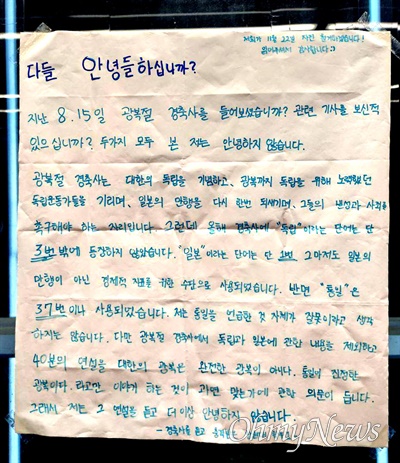 저희가 11월 22일 자진 철거하겠습니다!
읽어주셔서 감사합니다 :)
다들 안녕들하십니까?
지난 8.15일 광복절 경축사를 들어보셨습니까? 관련 기사를 보신적
있으십니까? 두가지 모두 본 저는 안녕하지 않습니다.
광복절 경축사는 대한의 독립을 기념하고, 광복까지 독립을 위해 노력했던
독립운동가들을 기리며, 일본의 만행을 다시 한번 되새기며, 그들의 반성과 사죄를
촉구해야 하는 자리입니다. 그런데 올해 경축사에 "독립"이라는 단어는 단
3번 밖에 등장하지 않았습니다. "일본"이라는 단어는 단 2번, 그마저도 일본의
만행이 아닌 경제적 지표를 위한 수단으로 사용되었습니다. 반면 "통일"은
37번이나 사용되었습니다. 저는 통일을 언급한 것 자체가 잘못이라고 생각
하지는 않습니다. 다만 광복절 경축사에서 독립과 일본에 관한 내용을 제외하고
40분의 연설을 대한의 광복은 완전한 광복이 아니다. 통일이 진정한
광복이다. 라고만 이야기 하는 것이 과연 맞는가에 관한 의문이 듭니다.
그래서 저는 그 연설을 듣고 더 이상 안녕하지 않습니다.
- 경축사를 듣고
OhmyNews